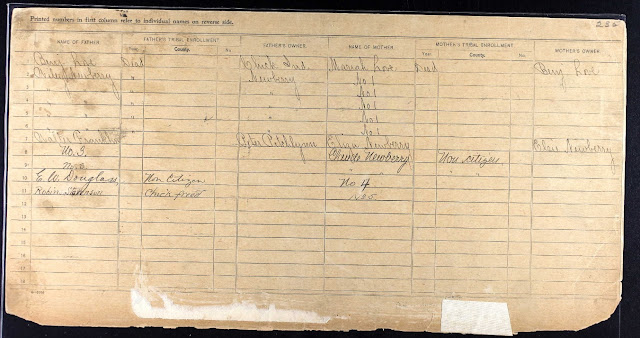 Printed numbers in first column refer to individual names on reverse side.
235
NAME OF FATHER. FATHER'S TRIBAL ENROLLMENT FATHER'S OWNER. NAME OF MOTHER. MOTHER'S TRIBAL ENROLLMENT MOTHER'S OWNER.
Year. County. No. Year. County. No.
Benj. Love Dead Chick Ind. Mariah Love Dead Benj. Love
Newberry " Newberry No 1
" No 1
" " No 1
3 " " No 1
No 1
Franklin Eliza Newberry Elsie Newberry
No. 3. Newberry Non citizen
9
10 C. W. Douglass Non Citizen No. 4
11 Robin Stevenson Chick freed No 5
12
13
14
15
16
17
18